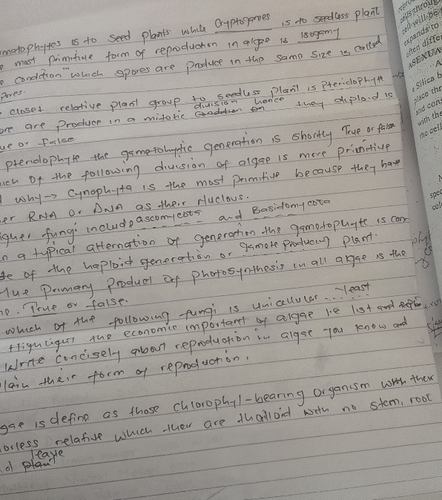 matophytes is to seed plants while Cryptogames is to seedless plant
e most primitive form of reproduction in algae is Isogamy
e condition" which spores are produce in the same size is called
pores.
closet relative plant group to seedless plant is pteridophyte
ore are produce in a mitotic division hence they diploid is
ue or false
pteridophyte the gametophytic generation is shortly True or false
ich of the following division of algae is more primitive
d why → Cynophyta is the most primitive because they have
er RNA or DNA as their nucleus.
igher fungi include ascomycota and Basidomycota
n a typical alternation of generation the gametophyte is con
de of the haploid generation or gamete producing plant.
The Primary Product of photosynthesis in all algae is the
ne. True or false.
which of the following fungi is unicellular ... Yeast
Highlight the economic important of algae i.e list and
Write concisely about reproduction in algae you know and
plain their form of reproduction.
gae is define as those chlorophyl-bearing Organism with their
orless relative which their are thalloid with no stem, root
d leave
plant
ASEXUA
a Silica
place the
and con
with the
no cell